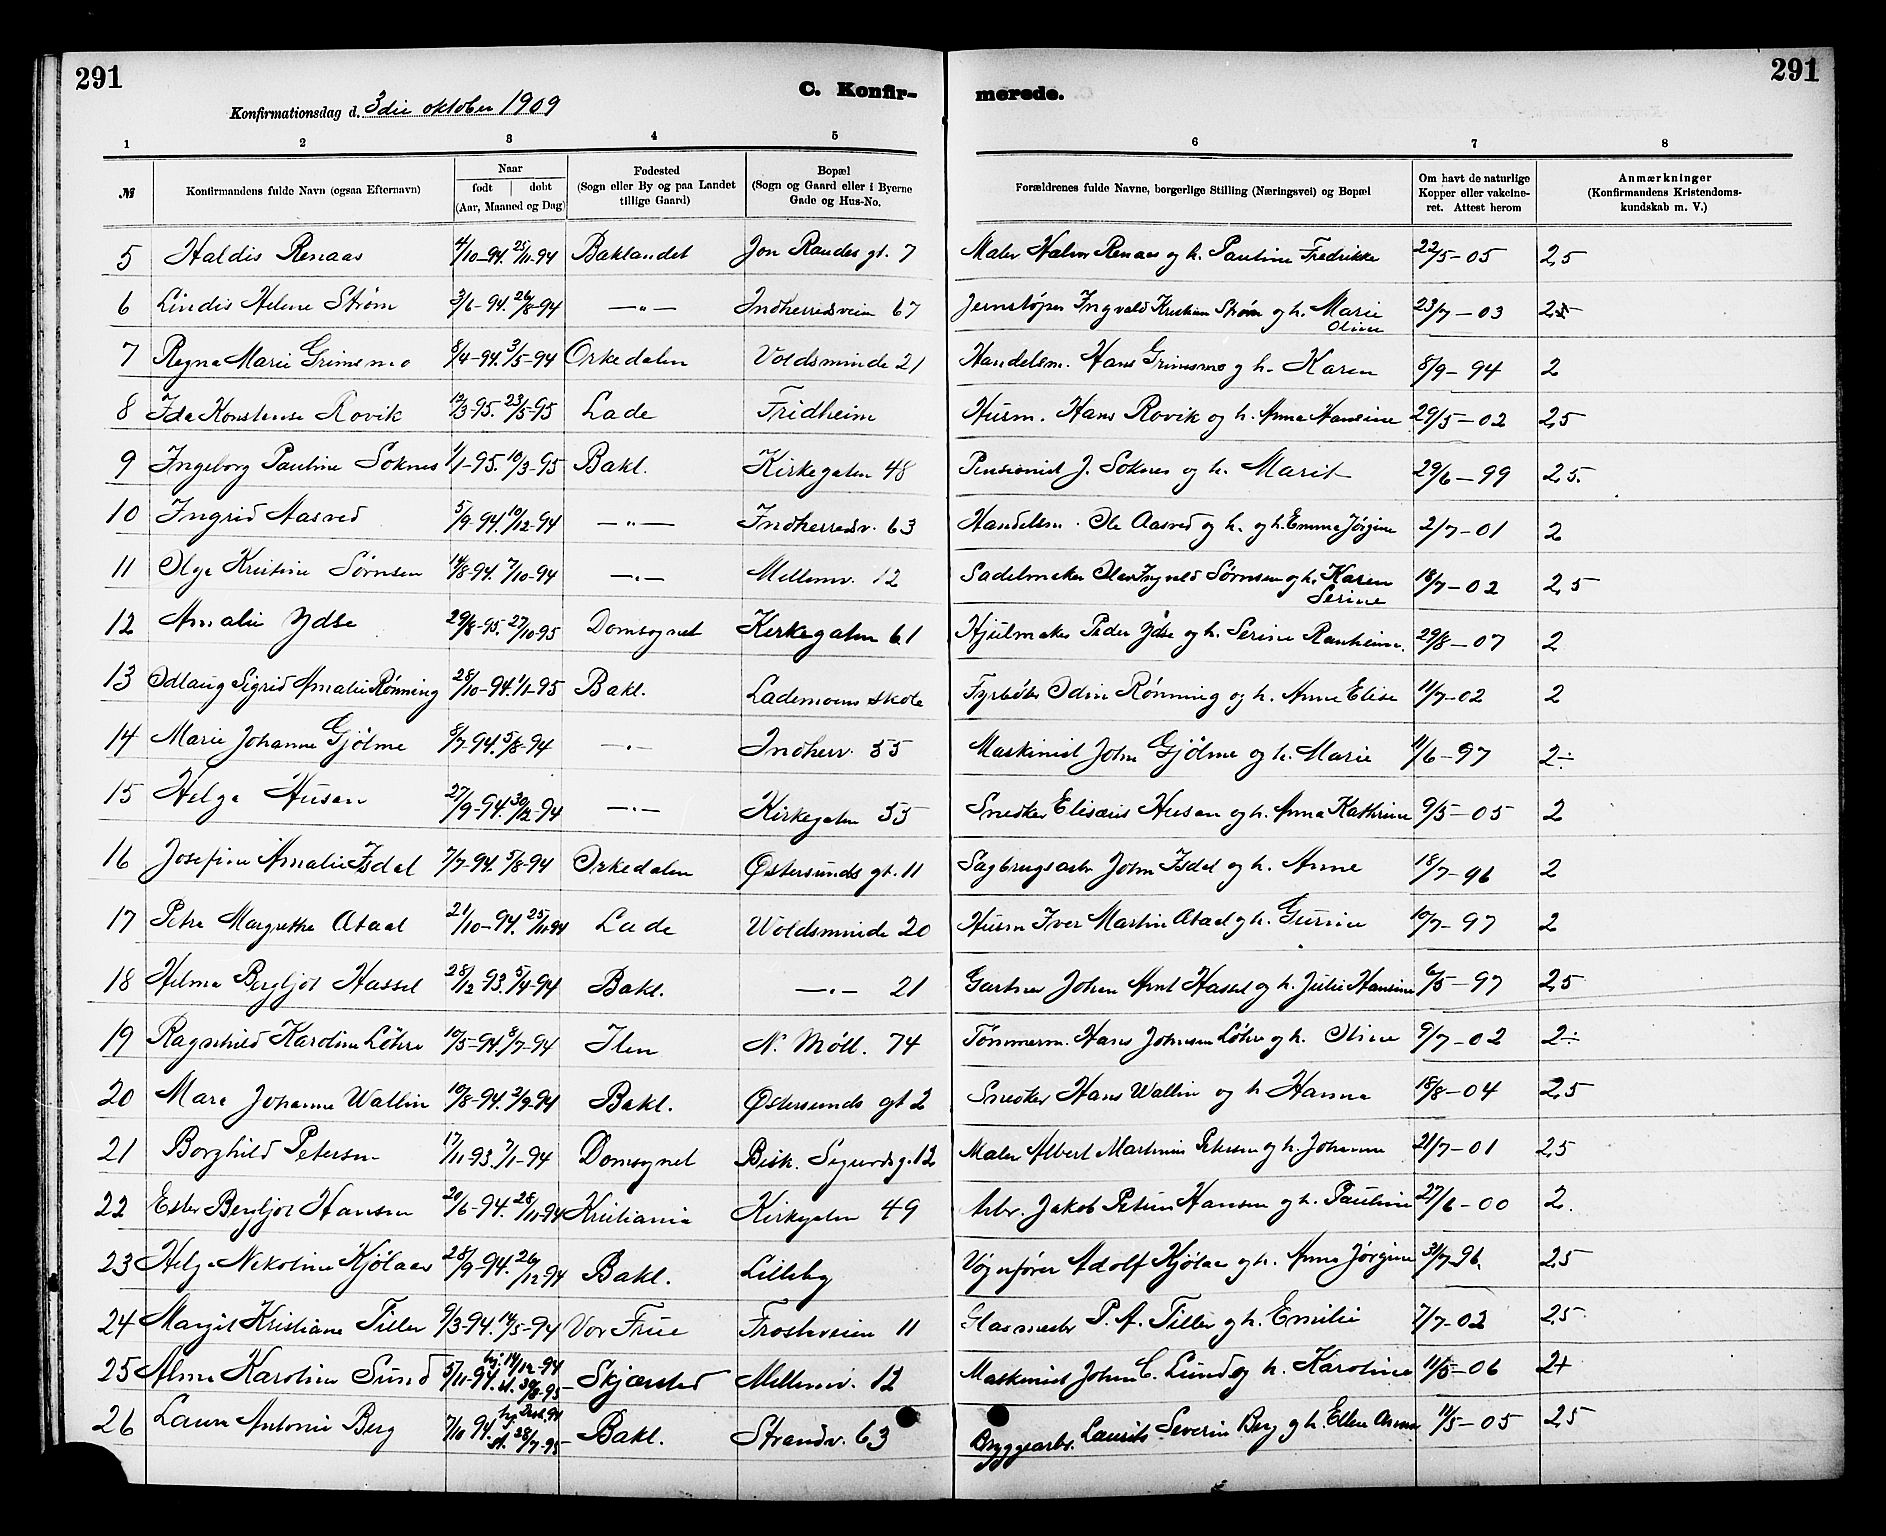 291
C. Konfir-
merede.
291
Konfirmationsdag d. 3die oktober 1909
1 2 3 4 5 6 7 8
№ Konfirmandens fulde Navn (ogsaa Efternavn) Naar født | døbt (Aar, Maaned og Dag) Fødested (Sogn eller By og paa Landet tillige Gaard) Bopæl (Sogn og Gaard eller i Byerne Gade og Hus-No. Forældrenes fulde Navne, borgerlige Stilling (Næringsvei) og Bopæl Om havt de naturlige Kopper eller vakcineret. Attest herom Anmærkninger (Konfirmandens Kristendomskundskab m. V.)
5 Haldis Renaas 4/10-94. 25/11-94 Baklandet Jon Raudes gt. 7 Maler Halvor Renaas og h. Pauline Fredrikke 22/5-05 2,5
6 Lindis Helene Strøm 3/6-94. 26/8-94 —"— Indherredsveien 67 Jernstøper Ingvald Kristian Strøm og h. Marie Oline 23/7-03 2,5
7 Regna Marie Grimsmo 8/4-94. 3/5-94 Orkedalen Voldsminde 21 Handelsm. Hans Grimsmo og h. Karen 8/9-94 2
8 Ida Konstanse Rovik 12/3-95. 23/5-95 Lade Fridheim Husm. Hans Rovik og h. Anna Hansine 29/5-02 2,5
9 Ingeborg Pauline Soknes 1/1-95. 10/3-95 Bakl. Kirkegaten 48 Pensionist J. Soknes og h. Marit 29/6-99 2,5.
10 Ingrid Aasved 5/9-94. 10/12-94 —"— Indherredsv. 63 Handelsm. Ole Aasved og h. og h. Emma Jørgine 2/7-01 2
11 Olga Kristine Sørnsen 14/8-94. 7/10-94 —"— Mellemv. 12 Sadelmaker Olav Ingvald Sørnsen og h. Karen Serine 18/7-02 2,5
12 Amalie Ydse 29/8-95. 27/10-95 Domsognet Kirkegaten 61 Hjulmaker Peder Ydse og h. Serine Ranheim. 29/8-07 2
13 Odlaug Sigrid Amalie Rønning 28/10-94. 1/1-95 Bakl. Lademoens skole Fyrbøter Odin Rønning og h. Anne Elise 11/7-02 2
14 Marie Johanne Gjølme 8/7-94. 5/8-94 —"— Indherr. 55 Maskinist John Gjølme og h. Marie 11/6-97 2÷
15 Helga Husan 27/9-94. 30/12-94 —"— Kirkegaten 55 Snedker Elisæus Husan og h. Anna Kathrine 9/5-05 2
16 Josefine Amalie Isdal 7/7-94. 5/8-94 Orkedalen Østersunds gt. 11 Sagbrugsarb. John Isdal og h. Anne 18/7-96 2
17 Petra Margrethe Abaal 21/10-94. 25/11-94 Lade Woldsminde 20 Husm Iver Martin Abaal og h. Gurine 10/7-97 2
18 Helma Bergljot Hassel 28/12-93. 5/4-94 Bakl. —"— 21 Gartner Johan Arnt Hassel og h. Julie Hansine 6/5-97 2,5
19 Ragnhild Karoline Løhre 10/5-94. 8/7-94 Ilen N. Møll. 74 Tømmerm. Hans Johnsen Løhre og h. Oline 9/7-02 2÷
20 Mara Johanne Wallin 10/8-94. 2/9-94 Bakl. Østersunds gt 2 Snedker Hans Wallin og h Hanna 18/8-04 2,5
21 Borghild Petersen 17/11-93. 7/1-94 Domsognet Bisk. Sigurds g. 12 Maler Albert Martinius Petersen og h. Johanne 21/7-01 2,5
22 Ester Bergljot Hansen 20/6-94. 28/11-94 Kristiania Kirkegaten 49 Arbr. Jakob Petter Hansen og h. Pauline 27/6-00 2.
23 Helga Nikoline Kjølaas 28/9-94. 26/12-94 Bakl. Lilleby Vognfører Adolf Kjølaas og h. Anna Jørgine 31/7-96. 2,5
24 Margit Kristiane Tiller 9/3-94. 14/5-94 Vor Frue Frostaveien 11 Glasmester P. A. Tiller og h. Emilie 7/7-02 2,5.
25 Alma Karoline Sund 5/11-94. hj. 14/12-94 st. 30/8-95- Skjærstad Mellemv. 12 Maskinist Johan C. Sund og h. Karoline 11/5-06 2+
26 Laura Antonie Berg 7/10 94. hj. Desb. 94 st. 28/7-95- Bakl. Strandv. 63 Bryggearbr. Laurits Severin Berg og h. Ellen Anna 11/5-05 2,5